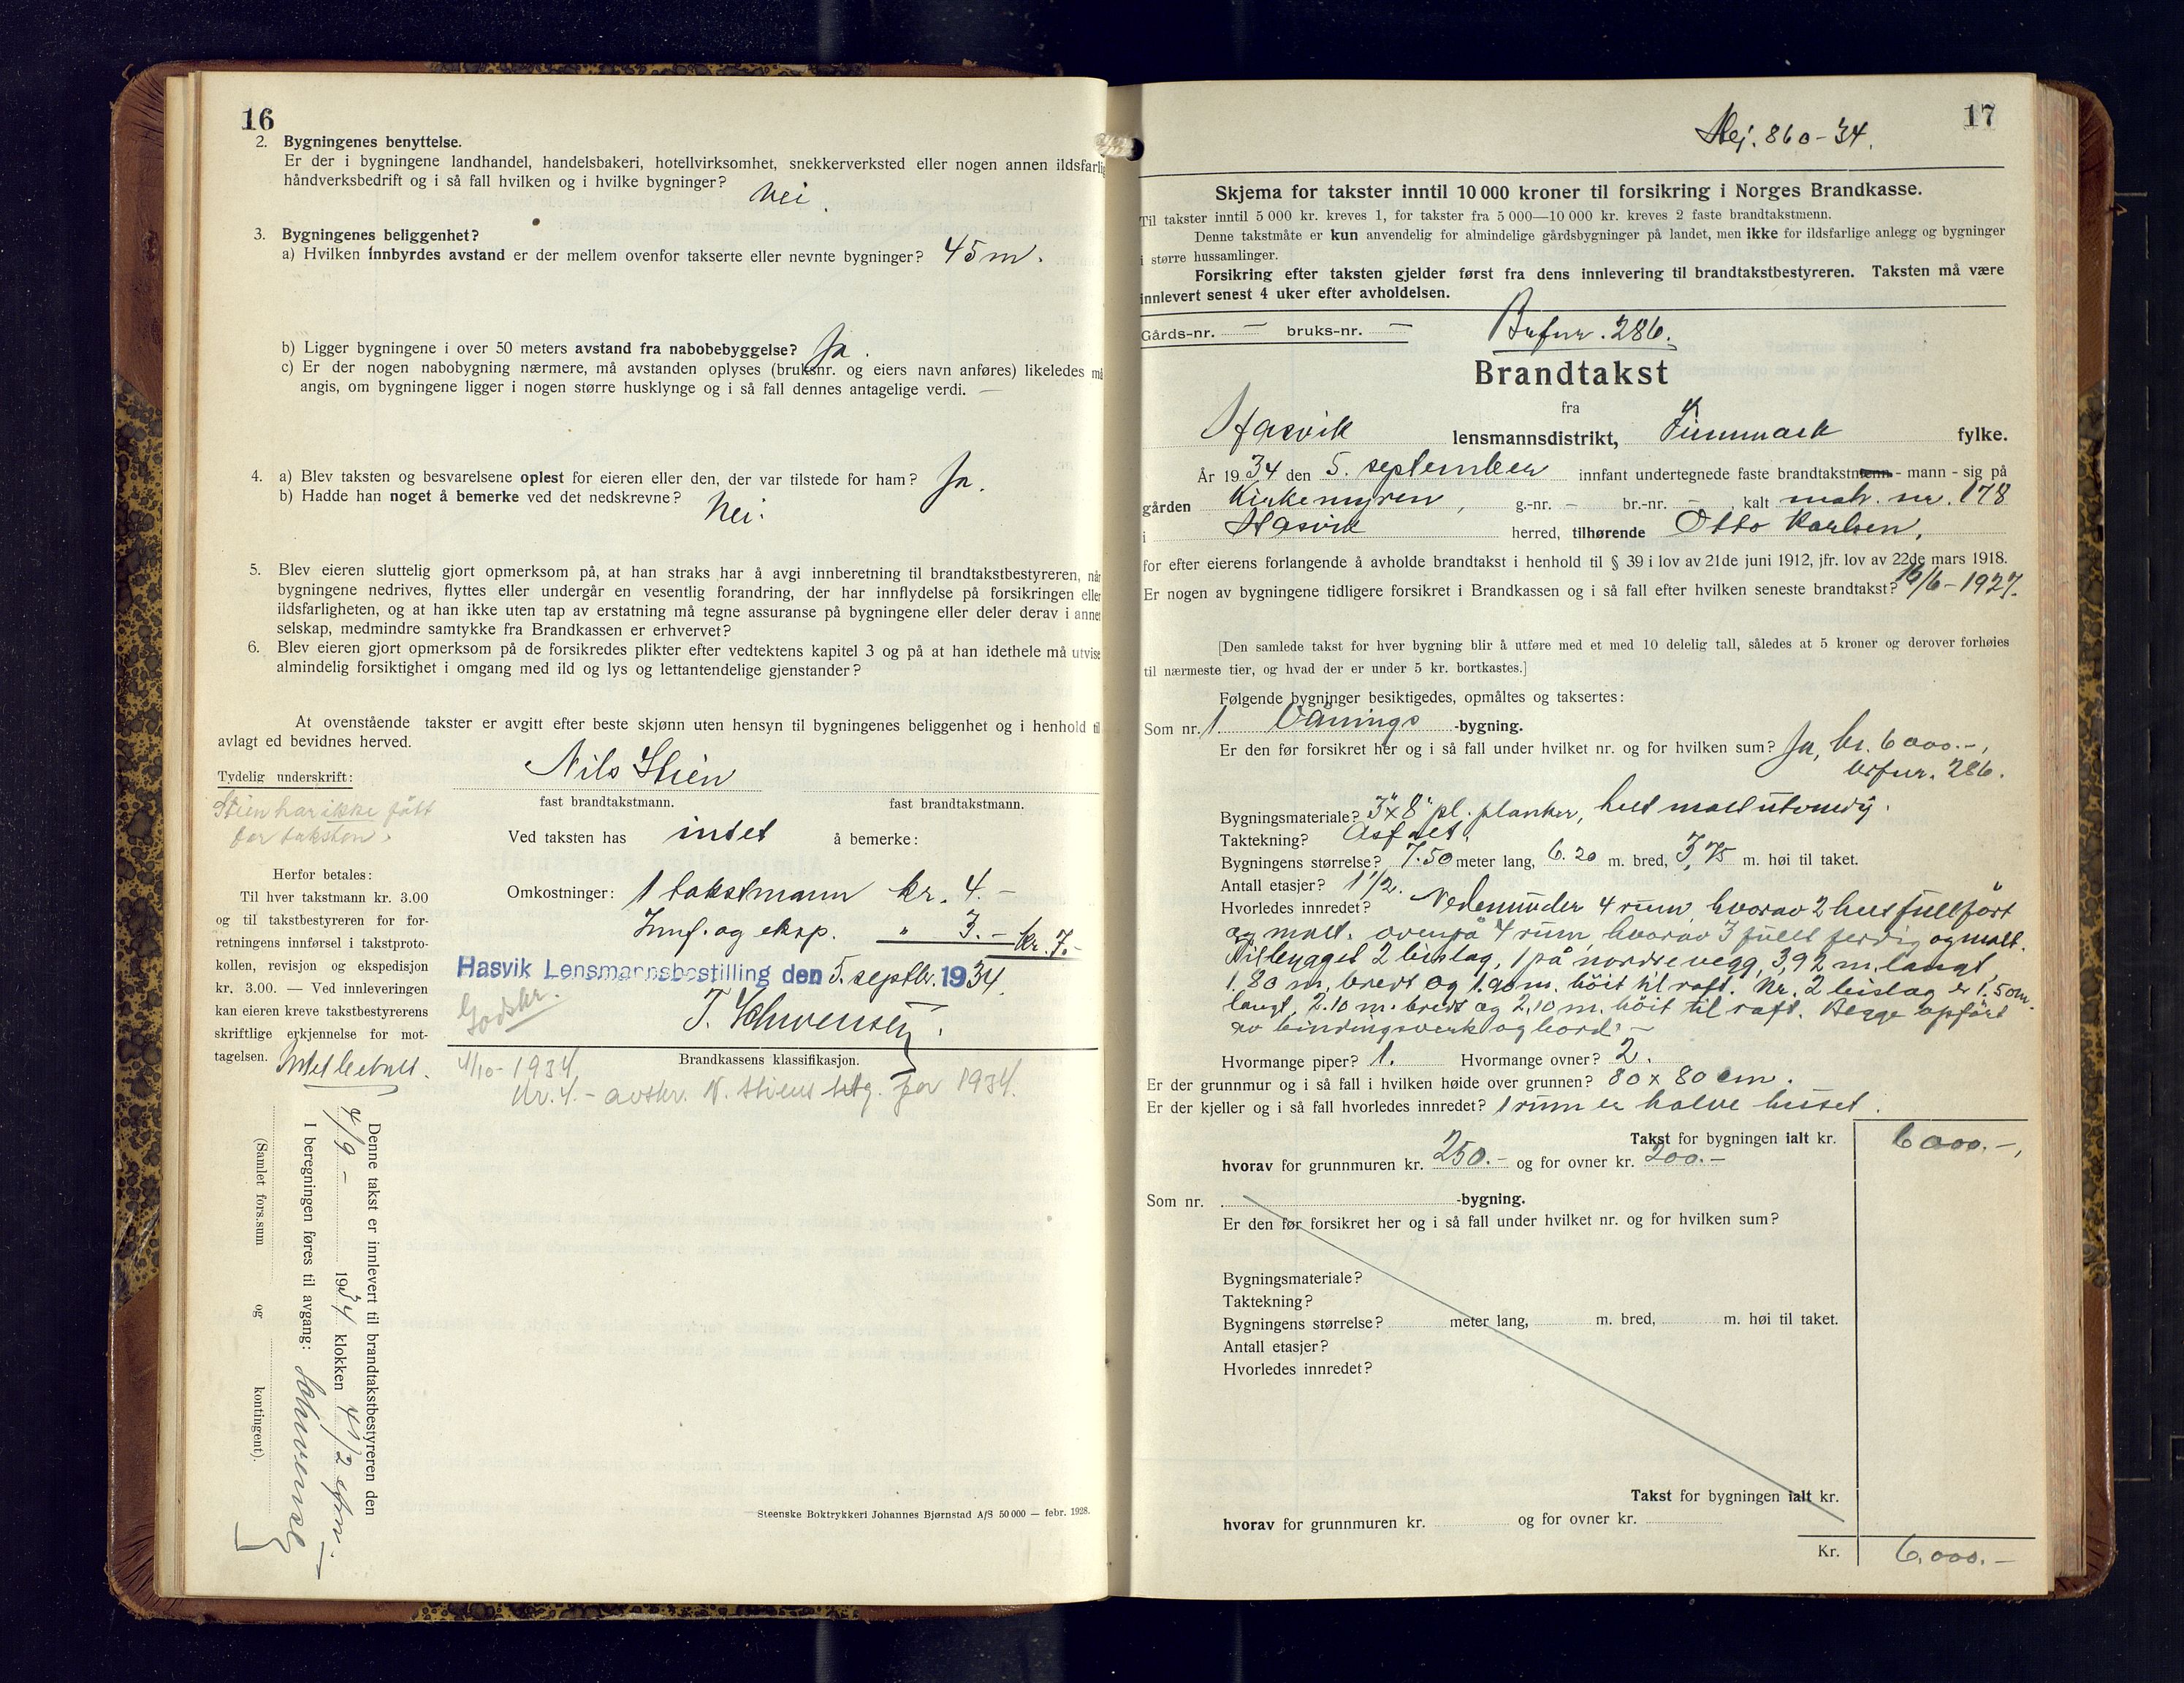 16
2. Bygningenes benyttelse.
Er der i bygningene landhandel, handelsbakeri, hotellvirksomhet, snekkerverksted eller nogen annen ildsfarlig
håndverksbedrift og i så fall hvilken og i hvilke bygninger? Nei.
3. Bygningenes beliggenhet?
a) Hvilken innbyrdes avstand er der mellem ovenfor takserte eller nevnte bygninger? 45 m.
b) Ligger bygningene i over 50 meters avstand fra nabobebyggelse? Ja.
c) Er der nogen nabobygning nærmere, må avstanden oplyses (bruksnr. og eiers navn anføres) likeledes må
angis, om bygningene ligger i nogen større husklynge og i så fall dennes antagelige verdi. —
4. a) Blev taksten og besvarelsene oplest for eieren eller den, der var tilstede for ham? Ja.
b) Hadde han noget å bemerke ved det nedskrevne? Nei.
5. Blev eieren sluttelig gjort opmerksom på, at han straks har å avgi innberetning til brandtakstbestyreren, når
bygningene nedrives, flyttes eller undergår en vesentlig forandring, der har innflydelse på forsikringen eller
ildsfarligheten, og at han ikke uten tap av erstatning må tegne assuranse på bygningene eller deler derav i annet
selskap, medmindre samtykke fra Brandkassen er erhvervet?
6. Blev eieren gjort opmerksom på de forsikredes plikter efter vedtektens kapitel 3 og på at han idethele må utvise
almindelig forsiktighet i omgang med ild og lys og lettantendelige gjenstander?
At ovenstående takster er avgitt efter beste skjønn uten hensyn til bygningenes beliggenhet og i henhold til
avlagt ed bevidnes herved.
Tydelig underskrift:
Nils Stien
fast brandtakstmann. fast brandtakstmann.
Stien har ikke fått
for taksten.
Ved taksten has intet å bemerke:
Herfor betales:
Til hver takstmann kr. 3.00
og til takstbestyreren for for-
retningens innførsel i takstproto-
kollen, revisjon og ekspedisjon
kr. 3.00. — Ved innleveringen
kan eieren kreve takstbestyrerens
skriftlige erkjennelse for mot-
tagelsen.
Omkostninger: 1 takstmann kr. 4.—
Innf. og eksp. " 3.— kr. 7.—
Hasvik Lensmannsbestilling den 5. septbr. 1934.
Godskr.
J. Schwensen.
Brandkassens klassifikasjon.
4/10-1934.
Kr. 4.— avskr. N. Stiens btg. for 1934.
Denne takst er innlevert til brandtakstbestyreren den
4/9 — 1934 klokken 4 1/2 efm.
I beregningen føres til avgang: Schwensen
(Samlet fors.sum og kontingent).
Steenske Boktrykkeri Johannes Bjørnstad A/S 50 000 — febr. 1928.
17
Mej. 860-34.
Skjema for takster inntil 10 000 kroner til forsikring i Norges Brandkasse.
Til takster inntil 5 000 kr. kreves 1, for takster fra 5 000—10 000 kr. kreves 2 faste brandtakstmenn.
Denne takstmåte er kun anvendelig for almindelige gårdsbygninger på landet, men ikke for ildsfarlige anlegg og bygninger
i større hussamlinger.
Forsikring efter taksten gjelder først fra dens innlevering til brandtakstbestyreren. Taksten må være
innlevert senest 4 uker efter avholdelsen.
Gårds-nr. — bruks-nr. — Brfnr. 286.
Brandtakst
fra
Hasvik lensmannsdistrikt, Finnmark fylke.
År 1934 den 5. september innfant undertegnede faste brandtakstmenn - mann - sig på
gården Kirkemyren, g.-nr. — br.-nr. — kalt matr. nr. 178
i Hasvik herred, tilhørende Otto Karlsen,
for efter eierens forlangende å avholde brandtakst i henhold til § 39 i lov av 21de juni 1912, jfr. lov av 22de mars 1918.
Er nogen av bygningene tidligere forsikret i Brandkassen og i så fall efter hvilken seneste brandtakst? 16/6-1927.
[Den samlede takst for hver bygning blir å utføre med et med 10 delelig tall, således at 5 kroner og derover forhøies
til nærmeste tier, og hvad der er under 5 kr. bortkastes.]
Følgende bygninger besiktigedes, opmåltes og taksertes:
Som nr. 1 Vånings -bygning.
Er den før forsikret her og i så fall under hvilket nr. og for hvilken sum? Ja, kr. 6000.—,
brfnr. 286.
Bygningsmateriale? 3" x 8" pl. planker, helt malt utvendig.
Taktekning? Asfalt.
Bygningens størrelse? 7.50 meter lang, 6.20 m. bred, 3,75 m. høi til taket.
Antall etasjer? 1 1/2.
Hvorledes innredet? Nedenunder 4 rum, hvorav 2 helt fullført
og malt. ovenpå 4 rum, hvorav 3 fullt ferdig og malt.
Tilbygget 2 bislag, 1 på nordre vegg, 3,92 m. langt,
1.80 m. bredt og 1.90 m. höit til raft. Nr. 2 bislag er 1.50 m.
langt, 2.10 m. bredt og 2,10 m. höit til raft. Begge opført
av bindingsverk og bord. —
Hvormange piper? 1. Hvormange ovner? 2.
Er der grunnmur og i så fall i hvilken høide over grunnen? 80 x 80 cm.
Er der kjeller og i så fall hvorledes innredet? 1 rum er halve huset.
Takst for bygningen ialt kr. 6000.—,
hvorav for grunnmuren kr. 250.— og for ovner kr. 200.—
Som nr. -bygning.
Er den før forsikret her og i så fall under hvilket nr. og for hvilken sum?
Bygningsmateriale?
Taktekning?
Bygningens størrelse? meter lang, m. bred, m. høi til taket.
Antall etasjer?
Hvorledes innredet?
Takst for bygningen ialt kr.
hvorav for grunnmuren kr. og for ovner kr.
Kr. 6.000.—